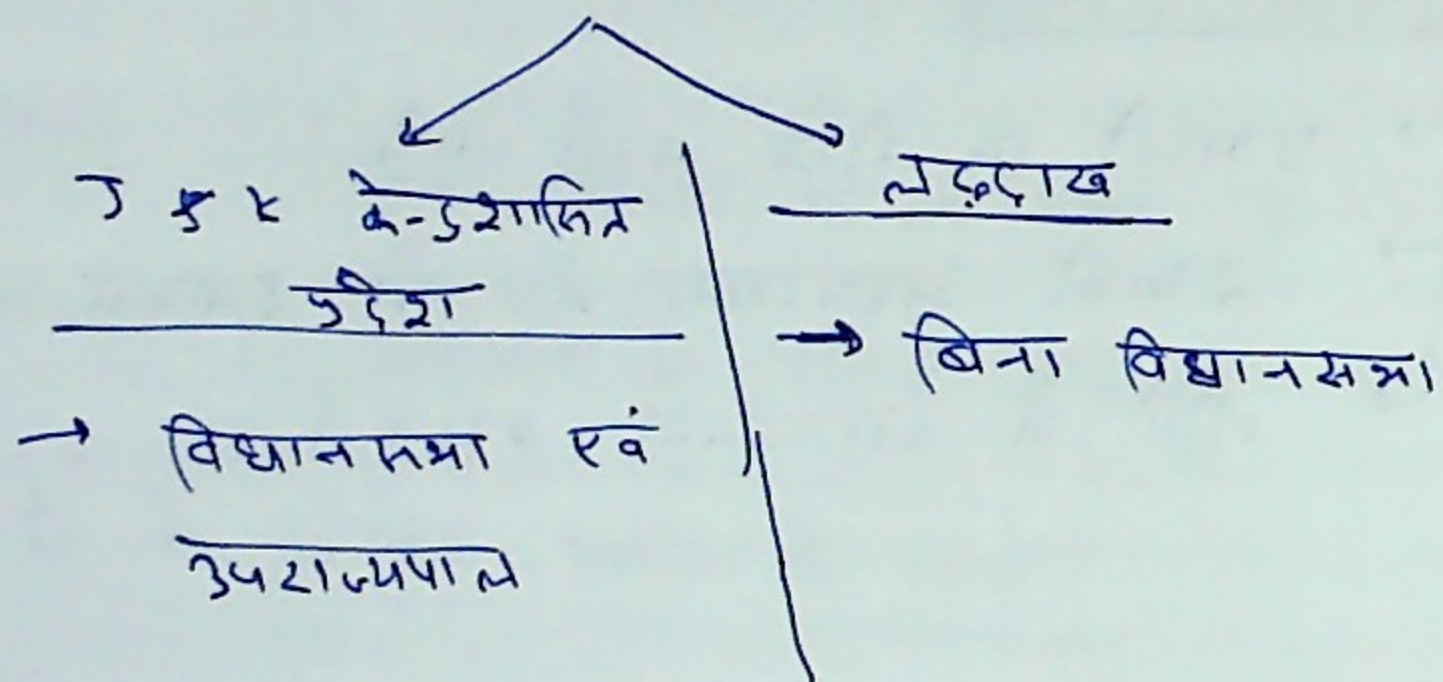 J & K केन्द्रशासित
प्रदेश
→ विधानसभा एवं
उपराज्यपाल
लद्दाख
→ बिना विधानसभा